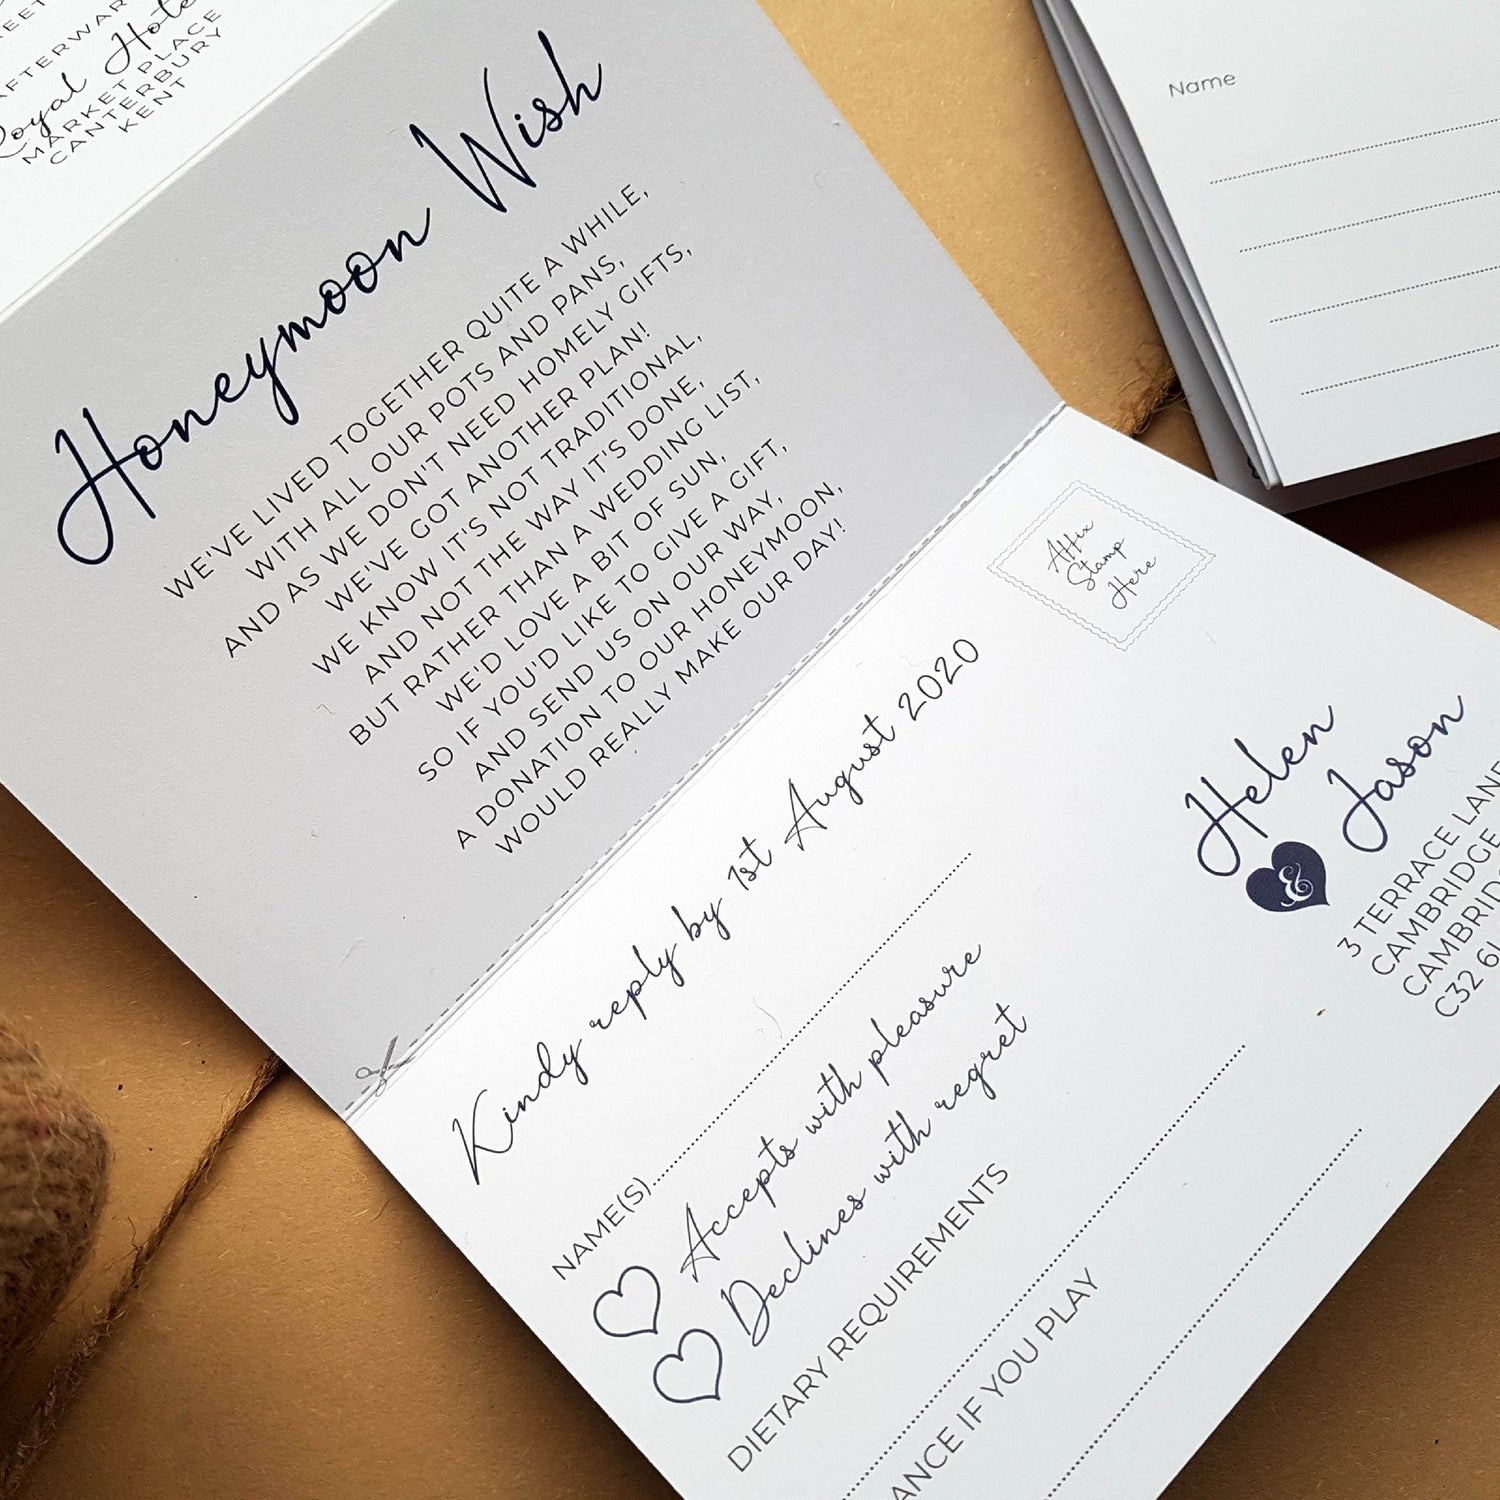 Royal
MARKET PLACE
CANTERBURY
KENT
Honeymoon Wish
WE'VE LIVED TOGETHER QUITE A WHILE,
WITH ALL OUR POTS AND PANS,
AND AS WE DON'T NEED HOMELY GIFTS,
WE'VE GOT ANOTHER PLAN!
WE KNOW IT'S NOT TRADITIONAL,
AND NOT THE WAY IT'S DONE,
BUT RATHER THAN A WEDDING LIST,
WE'D LOVE A BIT OF SUN,
SO IF YOU'D LIKE TO GIVE A GIFT,
AND SEND US ON OUR WAY,
A DONATION TO OUR HONEYMOON,
WOULD REALLY MAKE OUR DAY!
Name
Affix
Stamp
Here
Kindy reply by 1st August 2020
NAME(S)
Accepts with pleasure
Declines with regret
DIETARY REQUIREMENTS
IF YOU PLAY
Helen
&
Jason
3 TERRACE LANE
CAMBRIDGE
C32